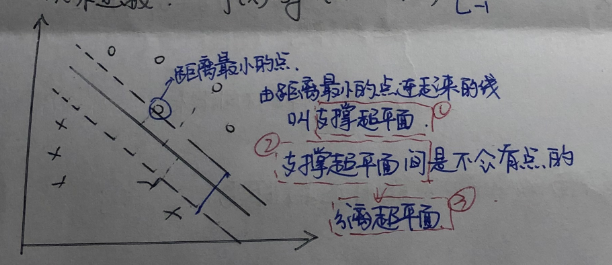 f(x)
距离最小的点.
由距离最小的点连起来的线
叫支撑超平面. ①
② 支撑超平面间是不会有点的
分离超平面. ③